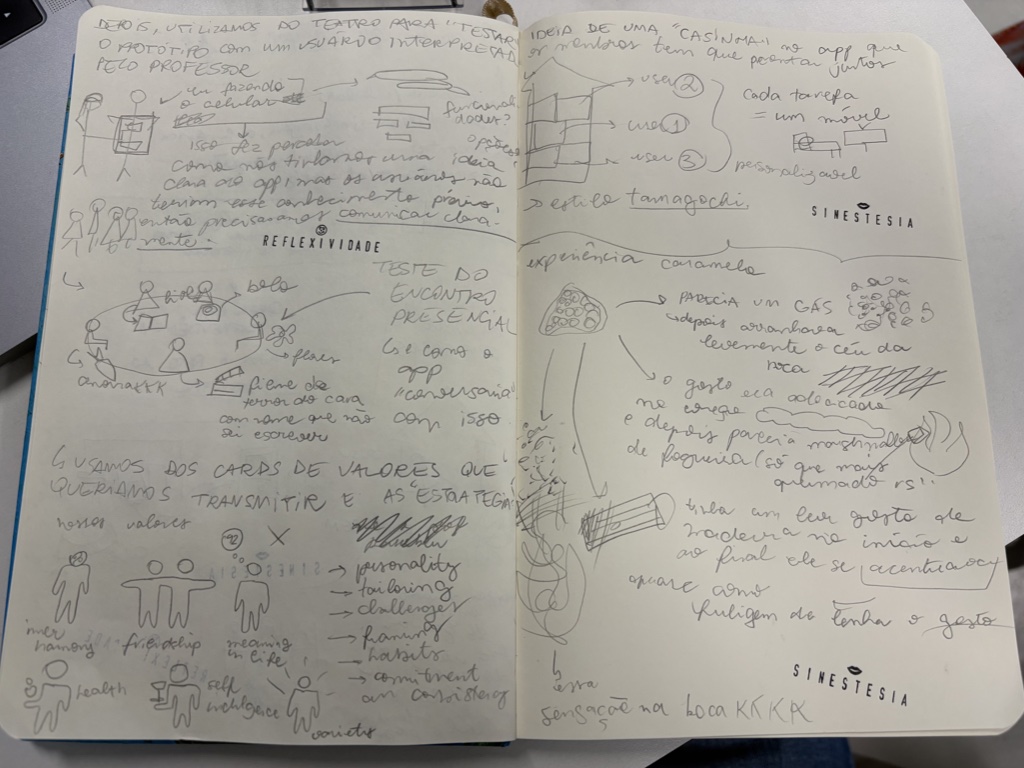 DEPOIS, UTILIZAMOS DO TEATRO PARA "TESTAR"
O PROTÓTIPO COM UM USUÁRIO INTERPRETADO
PELO PROFESSOR
eu fazendo
o celular
funcionali
dades?
isso fez perceber
como nós tinhamos uma ideia
clara do app, mas os usuários não
teriam esse conhecimento prévio,
então precisaramos comunicar clara-
mente.
REFLEXIVIDADE
TESTE DO
ENCONTRO
PRESENCIAL
bolo
flores
filme de
terror do cara
com nome que não
sei escrever
↳ e como o
app
"conversaria"
com isso
↳ USAMOS DOS CARDS DE VALORES QUE
QUERIAMOS TRANSMITIR E AS "ESTRATÉGIA
nossos valores
inner
harmony
friendship
meaning
in life
health
self
indulgence
varieties
→ personality
→ tailoring
→ challenges
→ framing
→ habits
→ commitment
and consistency
IDEIA DE UMA "CASINHA" no app que
os membros tem que montar juntos
user 2
user 1
user 3
cada tarefa
= um móvel
personalizável
→ estilo tamagochi.
SINESTESIA
experiência caramelo
PARECIA UM GÁS
↳ depois arranhava
levemente o céu da
boca
o gosto era adocicado
no começo
e depois parecia marshmallow
de fogueira (só que mais
queimado rs"
tinha um leve gosto de
madeira no início e
ao final ele se acentuava
quase como
fuligem da lenha o gosto
↳ essa
sensação na boca KKKK
SINESTESIA